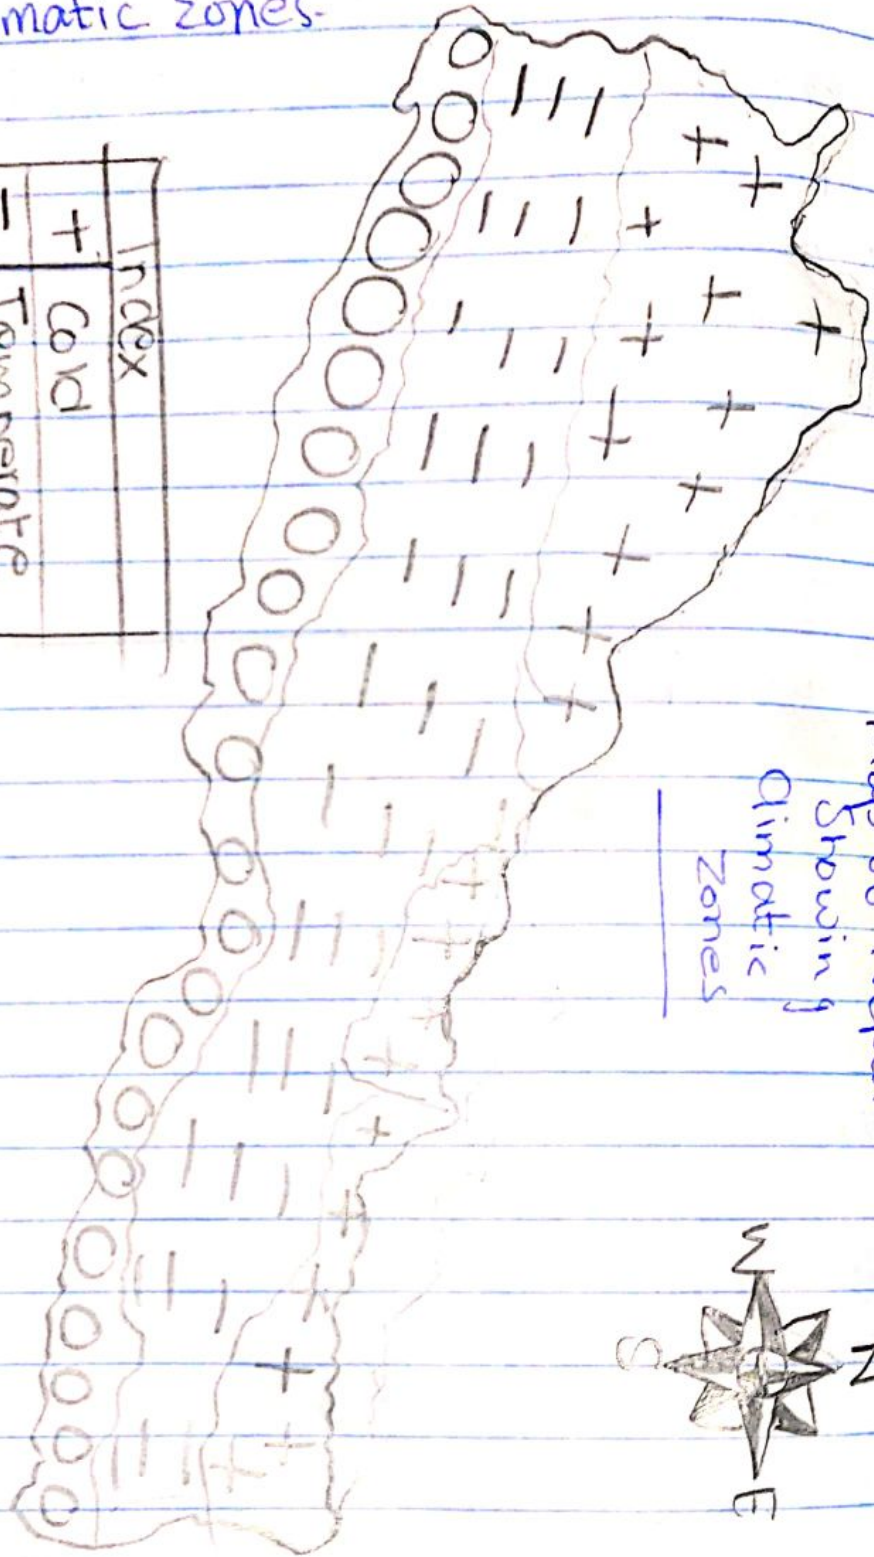 matic zones.
Showing
Climatic
Zones
N
W
E
S
Index
+ Cold
- Temperate